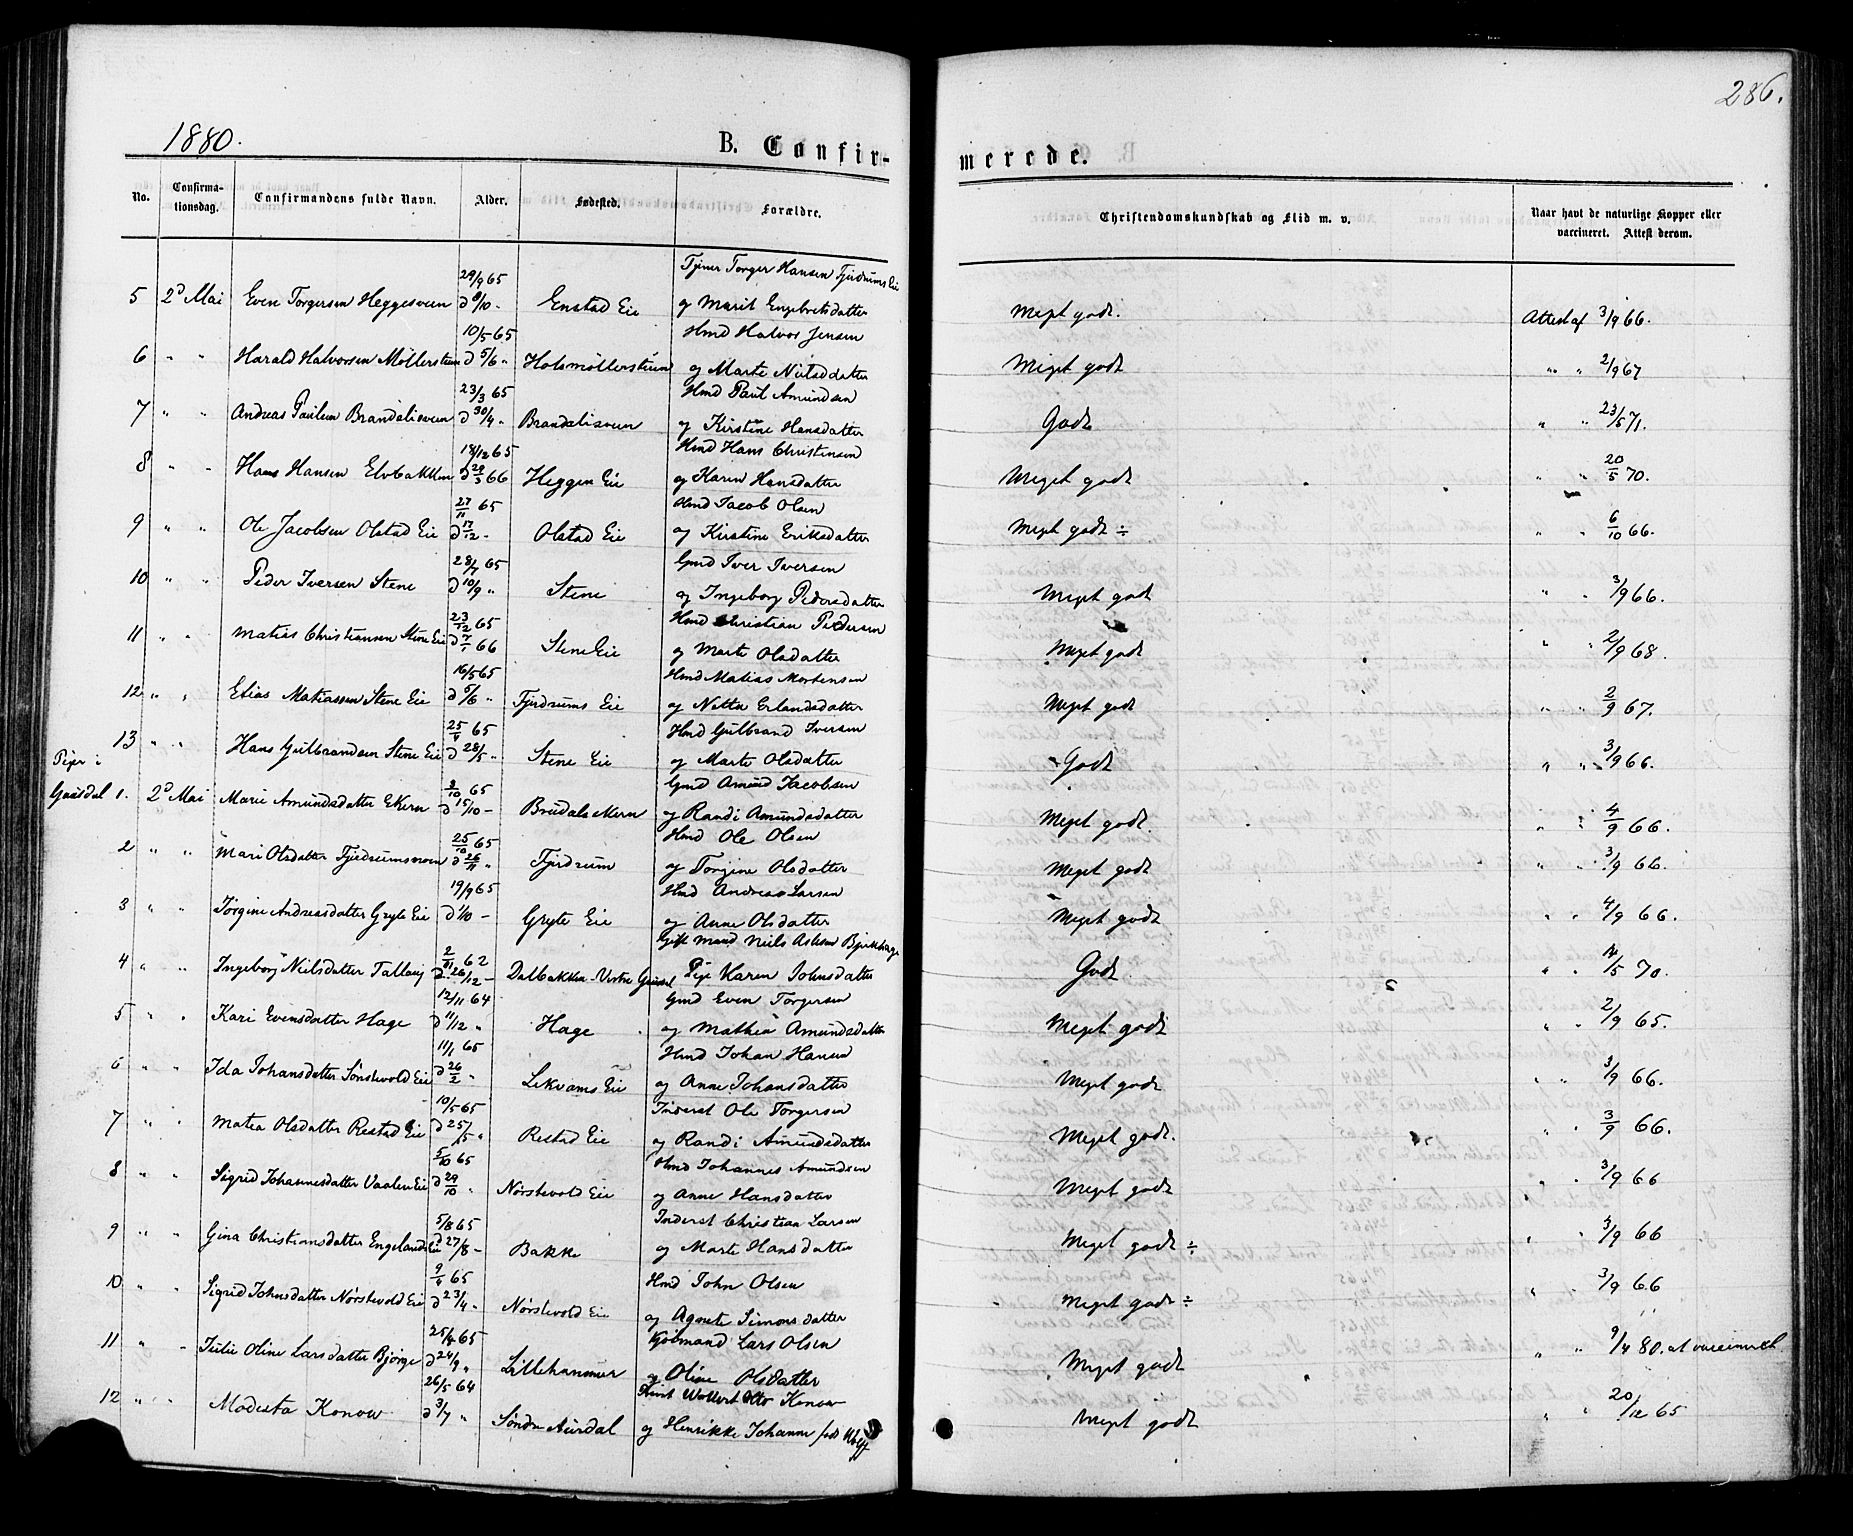 286.
1880.
B. Confirmerede.
No. Confirmationsdag. Confirmandens fulde Navn. Alder. Fødested. Forældre. Christendomskundskab og Flid m. v. Naar havt de naturlige Kopper eller vaccineret. Attest derom.
29/9 65 Tjener Torger Hansen Fjerdrums Eie
5 2d Mai Even Torgersen Heggesveen d 8/10 - Enstad Eie og Marit Engebretsdatter Meget godt. Attest af 3/9 66.
10/5 65 Hmd Halvor Jensen
6 " " Harald Halvorsen Møllerstuen d 5/6 " Holsmøllerstuen og Marte Nielsdatter Meget godt " " 2/9 67
23/3 65 Hmd Paul Amundsen
7 " " Andreas Paulsen Brandslisveen d 30/4 " Brandslisveen og Kirstine Hansdatter Godt " " 23/5 71.
18/12 65 Hmd Hans Christensen
8 " " Hans Hansen Elvbakken d 20/5 66 Heggen Eie og Karen Hansdatter Meget godt " " 20/5 70.
27/11 65 Hmd Jacob Olsen
9 " " Ole Jacobsen Olstad Eie d 17/12 - Olstad Eie og Kirstine Eriksdatter Meget godt ÷ " " 6/10 66.
28/7 65 Gmd Iver Iversen
10 " " Peder Iversen Stene d 10/9 " Stene og Ingeborg Pedersdatter Meget godt " " 3/9 66.
23/12 65 Hmd Christian Pedersen
11 " " Matias Christiansen Stene Eie d 7/1 66 Stene Eie og Marte Olsdatter Meget godt " " 2/9 68.
16/5 65 Hmd Matias Mortensen
12 " " Elias Matiassen Stene Eie d 5/6 " Fjerdrums Eie og Netta Erlandsdatter Meget godt " " 2/9 67.
25/4 65 Hmd Gulbrand Iversen
13 " " Hans Gulbrandsen Stene Eie d 28/5 " Stene Eie og Marte Olsdatter Godt " " 3/9 66.
Piger i
2/10 65 Gmd Amund Jacobsen
Gausdal 1. 2d Mai Marie Amundsdatter Ekern d 15/10 - Bredals Mern og Randi Amundsdatter Meget godt. " " 4/9 66.
25/10 65 Hmd Ole Olsen
2 " " Mari Olsdatter Fjerdrumsmoen d 26/11 " Fjerdrum og Torgine Olsdatter Meget godt " " 3/9 66.
19/9 65 Hmd Andreas Larsen
3 " " Jørgine Andreasdatter Gryte Eie d 1/10 - Gryte Eie og Anne Olsdatter Meget godt " " 4/9 66.
2/11 62 Gift Mand Niels Aslesen
4 " " Ingeborg Nielsdatter d 26/12 - Dalbakken Pige Karen Johnsdatter Godt. " " /5 70.
12/11 64 Gmd Even Torgersen
5 " " Kari Evensdatter Hage d 11/12 " Hage og Mathea Amundsdatter Meget godt " " 2/9 65.
11/1 65 Hmd Johan Hansen
6 " " Ida Johansdatter Sørstevold Eie d 26/2 " Lekvams Eie og Anne Johansdatter Meget godt " " 3/9 66.
10/5 65 Inderst Ole Torgersen
7 " " Matea Olsdatter Restad Eie d 25/5 " Restad Eie og Randi Amundsdatter Meget godt. " " 3/9 66.
5/10 65 Hmd Johannes Amundsen
8 " " Sigrid Johannesdatter Vaalen Eie d 29/10 " Nørstevold Eie og Anne Hansdatter Meget godt " " 3/9 66
5/8 65 Inderst Christian Larsen
9 " " Gina Christiansdatter Engelands Eie d 27/8 - Bakke og Marte Hansdatter Meget godt ÷ " " 3/9 66
9/4 65 Hmd John Olsen
10 " " Sigrid Johnsdatter Nørstevold Eie d 23/4 " Nørstevold Eie og Agnete Simonsdatter Meget godt ÷ " " 3/9 66
25/4 65 Kjøbmand Lars Olsen
11 " " Julie Oline Larsdatter Bjørge d 24/9 " Lillehammer og Oline Olsdatter Meget godt " " 9/4 80. at vaccineret
26/5 64 Wollert Otto Konow
12 " " Modesta Konow d 3/7 " Søndre Aurdal og Henrikke Johanne født Wolff Meget godt " " 20/12 65